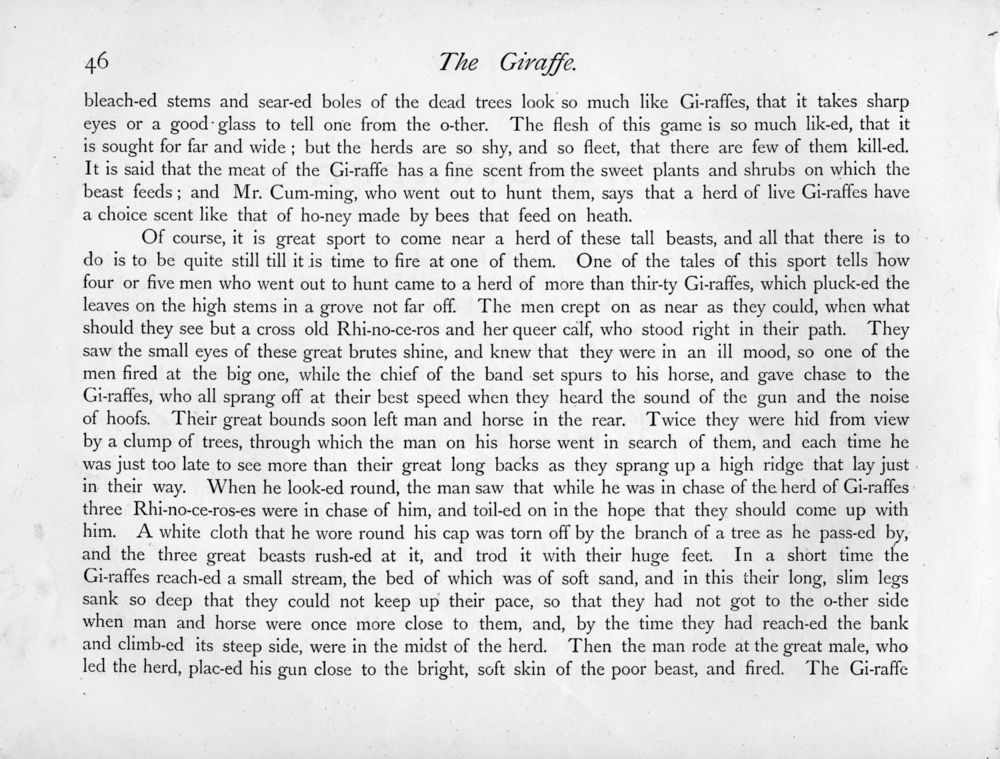 46
The Giraffe.
bleach-ed stems and sear-ed boles of the dead trees look so much like Gi-raffes, that it takes sharp
eyes or a good glass to tell one from the o-ther. The flesh of this game is so much lik-ed, that it
is sought for far and wide; but the herds are so shy, and so fleet, that there are few of them kill-ed.
It is said that the meat of the Gi-raffe has a fine scent from the sweet plants and shrubs on which the
beast feeds; and Mr. Cum-ming, who went out to hunt them, says that a herd of live Gi-raffes have
a choice scent like that of ho-ney made by bees that feed on heath.
Of course, it is great sport to come near a herd of these tall beasts, and all that there is to
do is to be quite still till it is time to fire at one of them. One of the tales of this sport tells how
four or five men who went out to hunt came to a herd of more than thir-ty Gi-raffes, which pluck-ed the
leaves on the high stems in a grove not far off. The men crept on as near as they could, when what
should they see but a cross old Rhi-no-ce-ros and her queer calf, who stood right in their path. They
saw the small eyes of these great brutes shine, and knew that they were in an ill mood, so one of the
men fired at the big one, while the chief of the band set spurs to his horse, and gave chase to the
Gi-raffes, who all sprang off at their best speed when they heard the sound of the gun and the noise
of hoofs. Their great bounds soon left man and horse in the rear. Twice they were hid from view
by a clump of trees, through which the man on his horse went in search of them, and each time he
was just too late to see more than their great long backs as they sprang up a high ridge that lay just
in their way. When he look-ed round, the man saw that while he was in chase of the herd of Gi-raffes
three Rhi-no-ce-ros-es were in chase of him, and toil-ed on in the hope that they should come up with
him. A white cloth that he wore round his cap was torn off by the branch of a tree as he pass-ed by,
and the three great beasts rush-ed at it, and trod it with their huge feet. In a short time the
Gi-raffes reach-ed a small stream, the bed of which was of soft sand, and in this their long, slim legs
sank so deep that they could not keep up their pace, so that they had not got to the o-ther side
when man and horse were once more close to them, and, by the time they had reach-ed the bank
and climb-ed its steep side, were in the midst of the herd. Then the man rode at the great male, who
led the herd, plac-ed his gun close to the bright, soft skin of the poor beast, and fired. The Gi-raffe